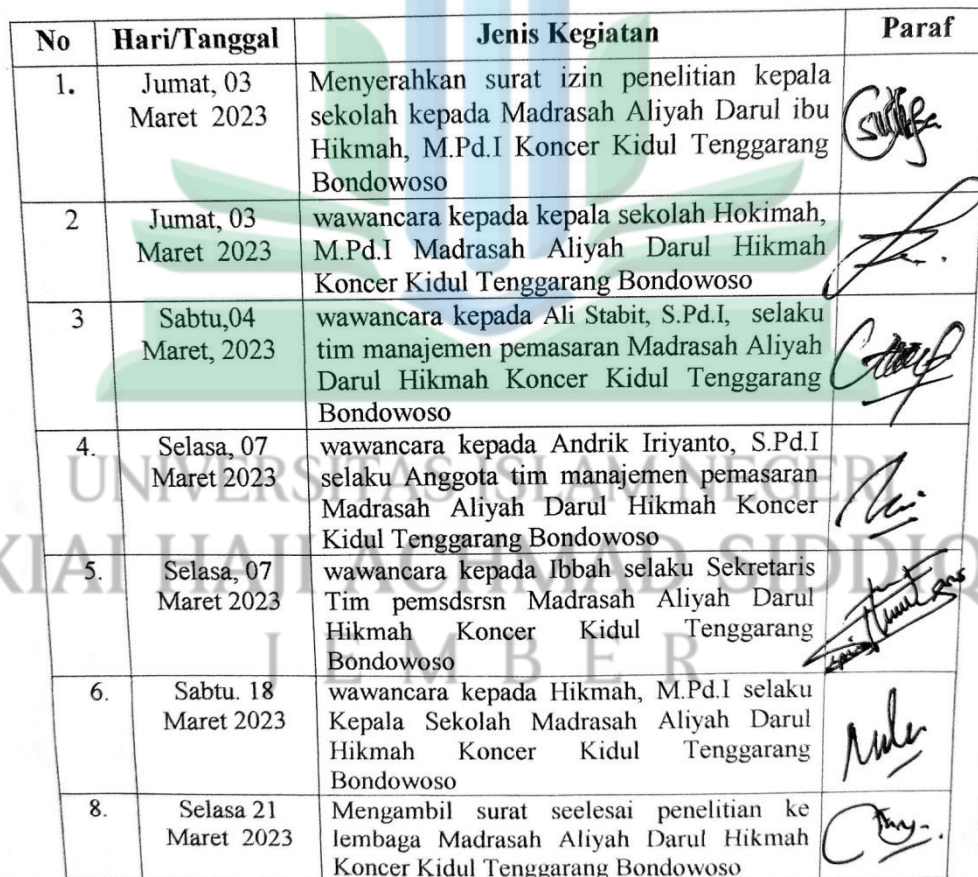 No Hari/Tanggal Jenis Kegiatan Paraf
1. Jumat, 03 Menyerahkan surat izin penelitian kepala
Maret 2023 sekolah kepada Madrasah Aliyah Darul ibu
Hikmah, M.Pd.I Koncer Kidul Tenggarang
Bondowoso
2 Jumat, 03 wawancara kepada kepala sekolah Hokimah,
Maret 2023 M.Pd.I Madrasah Aliyah Darul Hikmah
Koncer Kidul Tenggarang Bondowoso
3 Sabtu,04 wawancara kepada Ali Stabit, S.Pd.I, selaku
Maret, 2023 tim manajemen pemasaran Madrasah Aliyah
Darul Hikmah Koncer Kidul Tenggarang
Bondowoso
4. Selasa, 07 wawancara kepada Andrik Iriyanto, S.Pd.I
Maret 2023 selaku Anggota tim manajemen pemasaran
Madrasah Aliyah Darul Hikmah Koncer
Kidul Tenggarang Bondowoso
5. Selasa, 07 wawancara kepada Ibbah selaku Sekretaris
Maret 2023 Tim pemsdsrsn Madrasah Aliyah Darul
Hikmah Koncer Kidul Tenggarang
Bondowoso
6. Sabtu. 18 wawancara kepada Hikmah, M.Pd.I selaku
Maret 2023 Kepala Sekolah Madrasah Aliyah Darul
Hikmah Koncer Kidul Tenggarang
Bondowoso
8. Selasa 21 Mengambil surat seelesai penelitian ke
Maret 2023 lembaga Madrasah Aliyah Darul Hikmah
Koncer Kidul Tenggarang Bondowoso
UNIVERSITAS ISLAM NEGERI
KIAI HAJI ACHMAD SIDDIQ
JEMBER